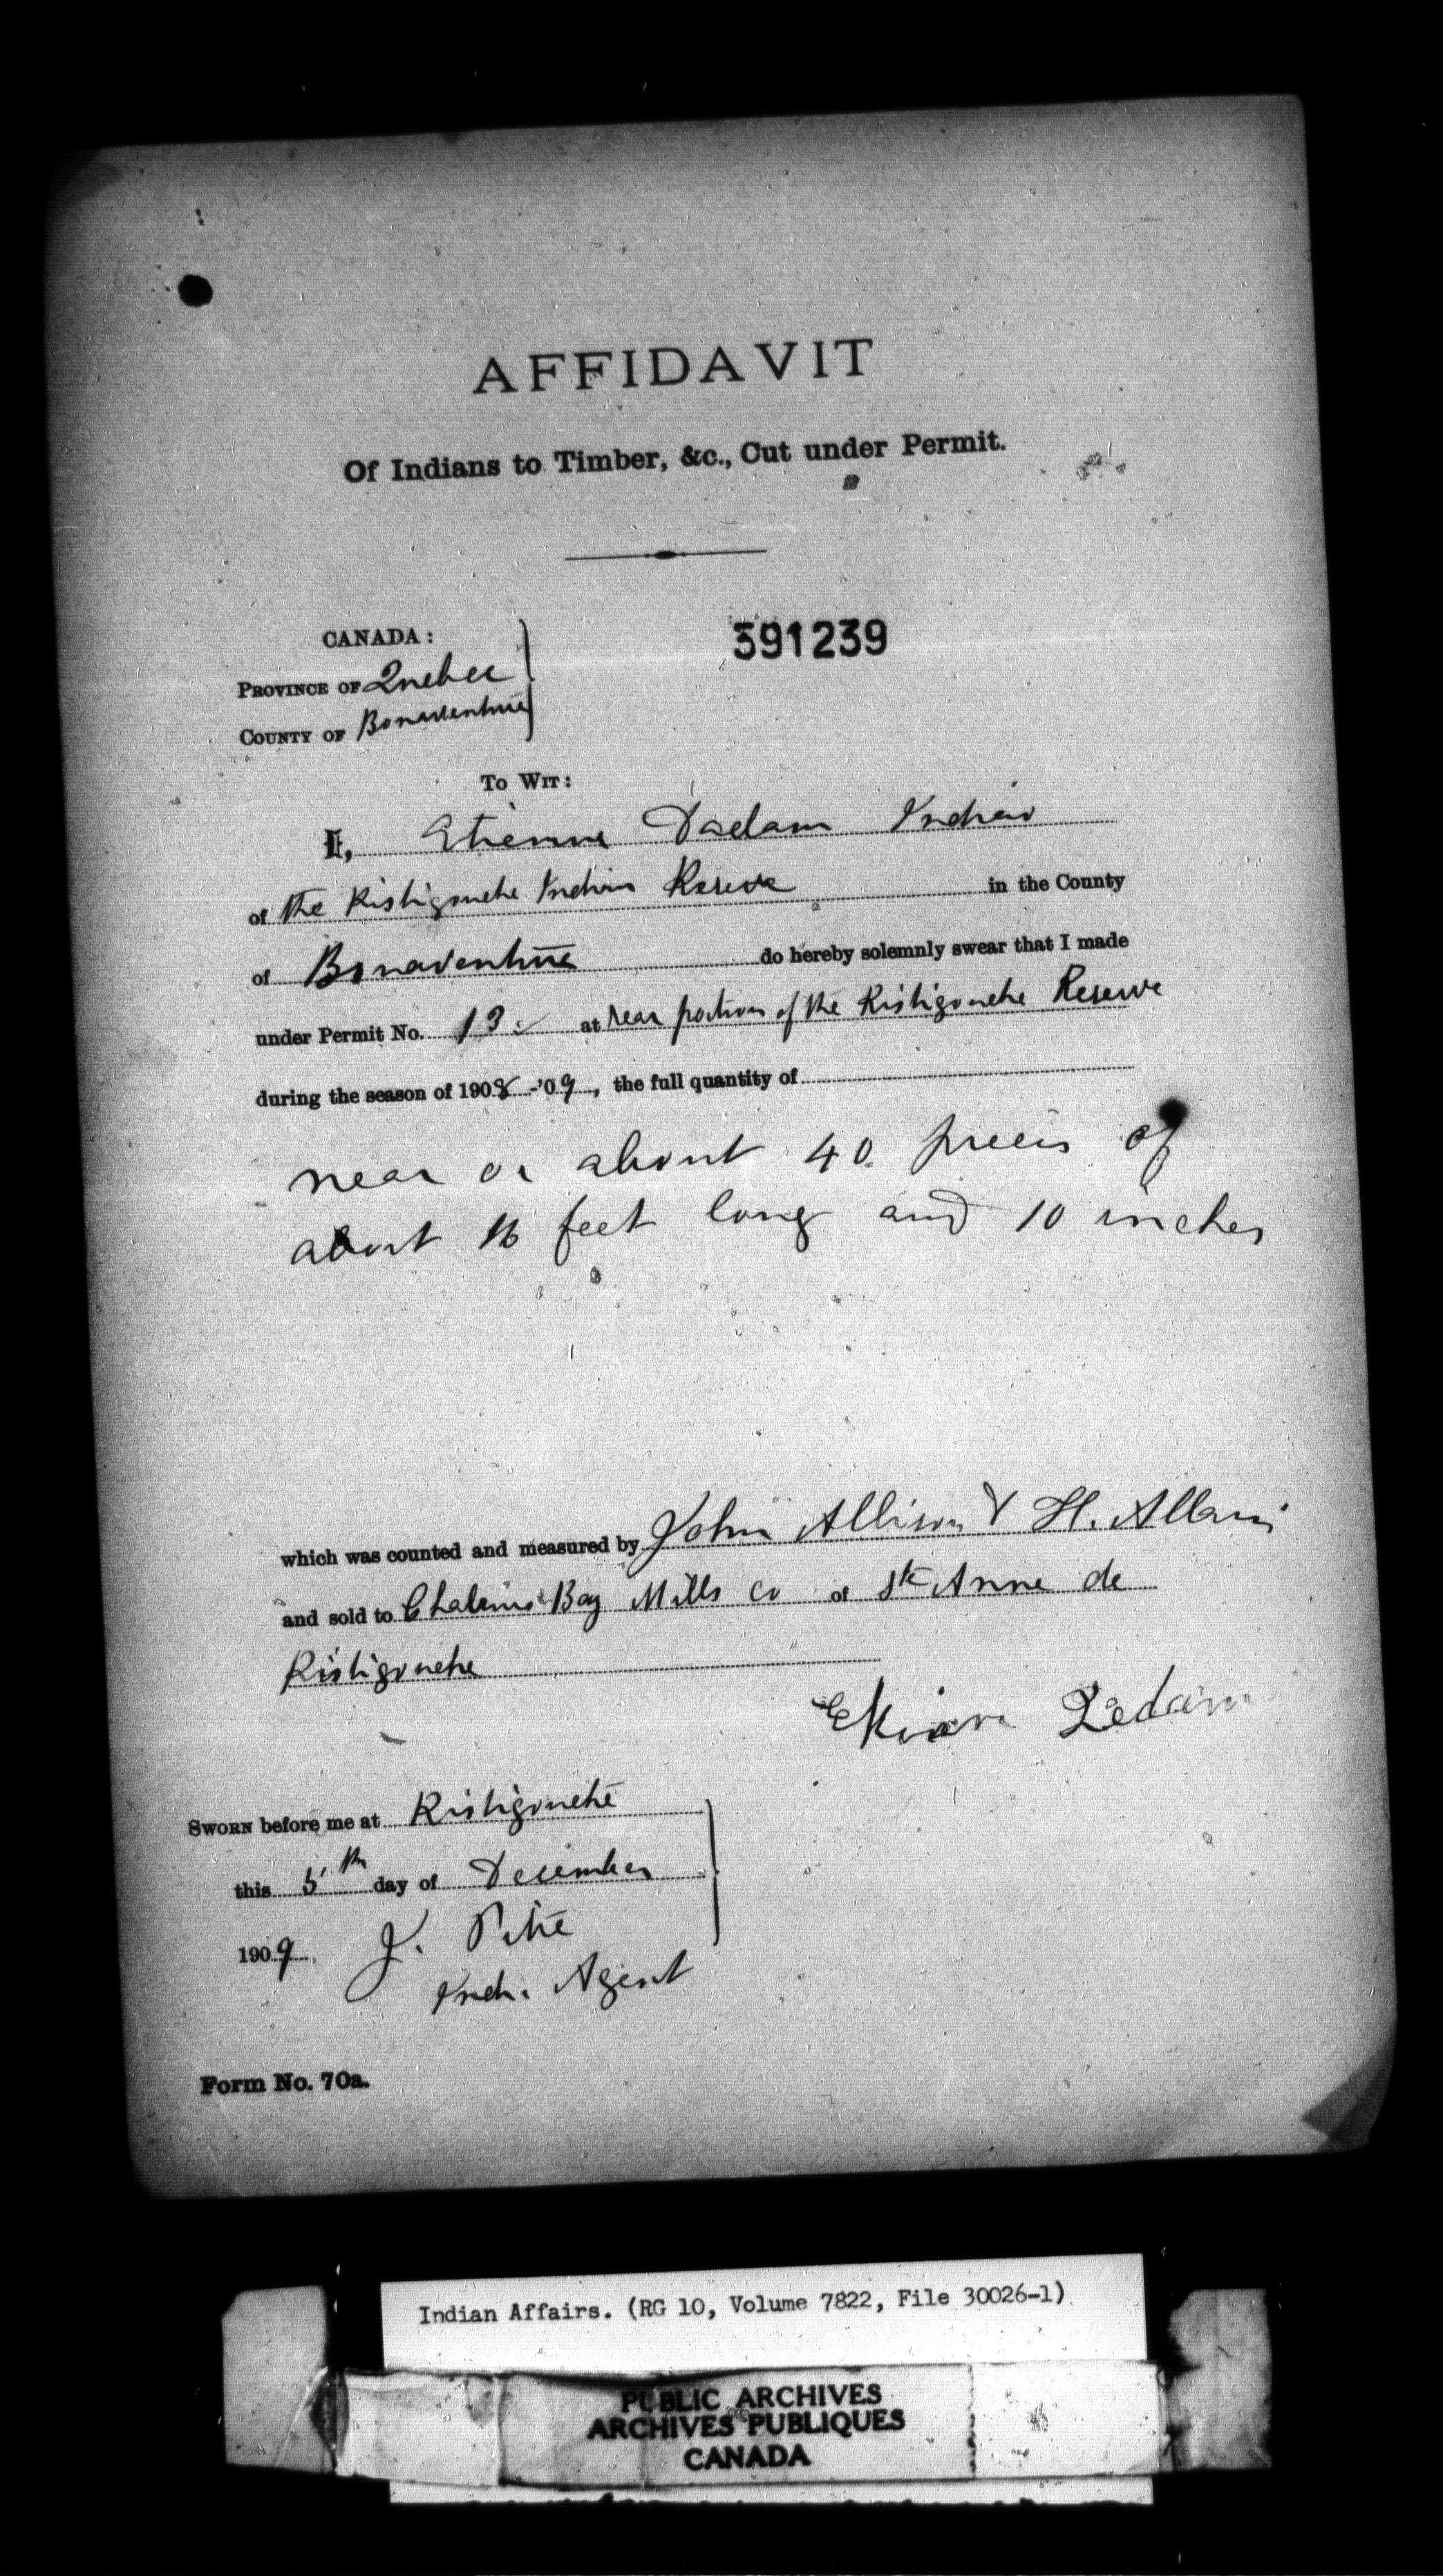 AFFIDAVIT
Of Indians to Timber, &c., Cut under Permit.
CANADA:
391239
PROVINCE OF Quebec
COUNTY OF Bonaventure
TO WIT:
I, Etienne Dadam Indian
of the Ristigouche Indian Reserve in the County
of Bonaventure do hereby solemnly swear that I made
under Permit No. 13 at rear portion of the Ristigouche Reserve
during the season of 1908-'09, the full quantity of
near or about 40 pieces of
about 16 feet long and 10 inches
which was counted and measured by John Allison & H. Allain
and sold to Chaleurs Bay Mills Co of Ste Anne de
Ristigouche
SWORN before me at Ristigouche
this 5th day of December
1909 J. Pitre
Ind. Agent
Form No. 70a.
Indian Affairs. (RG 10, Volume 7822, File 30026-1)
PUBLIC ARCHIVES
ARCHIVES PUBLIQUES
CANADA